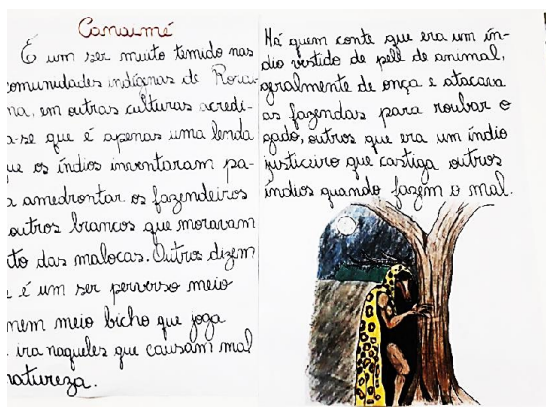 Canaimé
É um ser muito temido nas
comunidades indígenas de Rorai-
ma, em outras culturas acredi-
a-se que é apenas uma lenda
ue os índios inventaram pa-
a amedrontar os fazendeiros
outros brancos que moravam
to das malocas. Outros dizem
e é um ser perverso meio
mem meio bicho que joga
ira naqueles que causam mal
natureza.
Há quem conte que era um ín-
dio vestido de pele de animal,
geralmente de onça e atacava
as fazendas para roubar o
gado, outros que era um índio
justiceiro que castiga outros
índios quando fazem o mal.